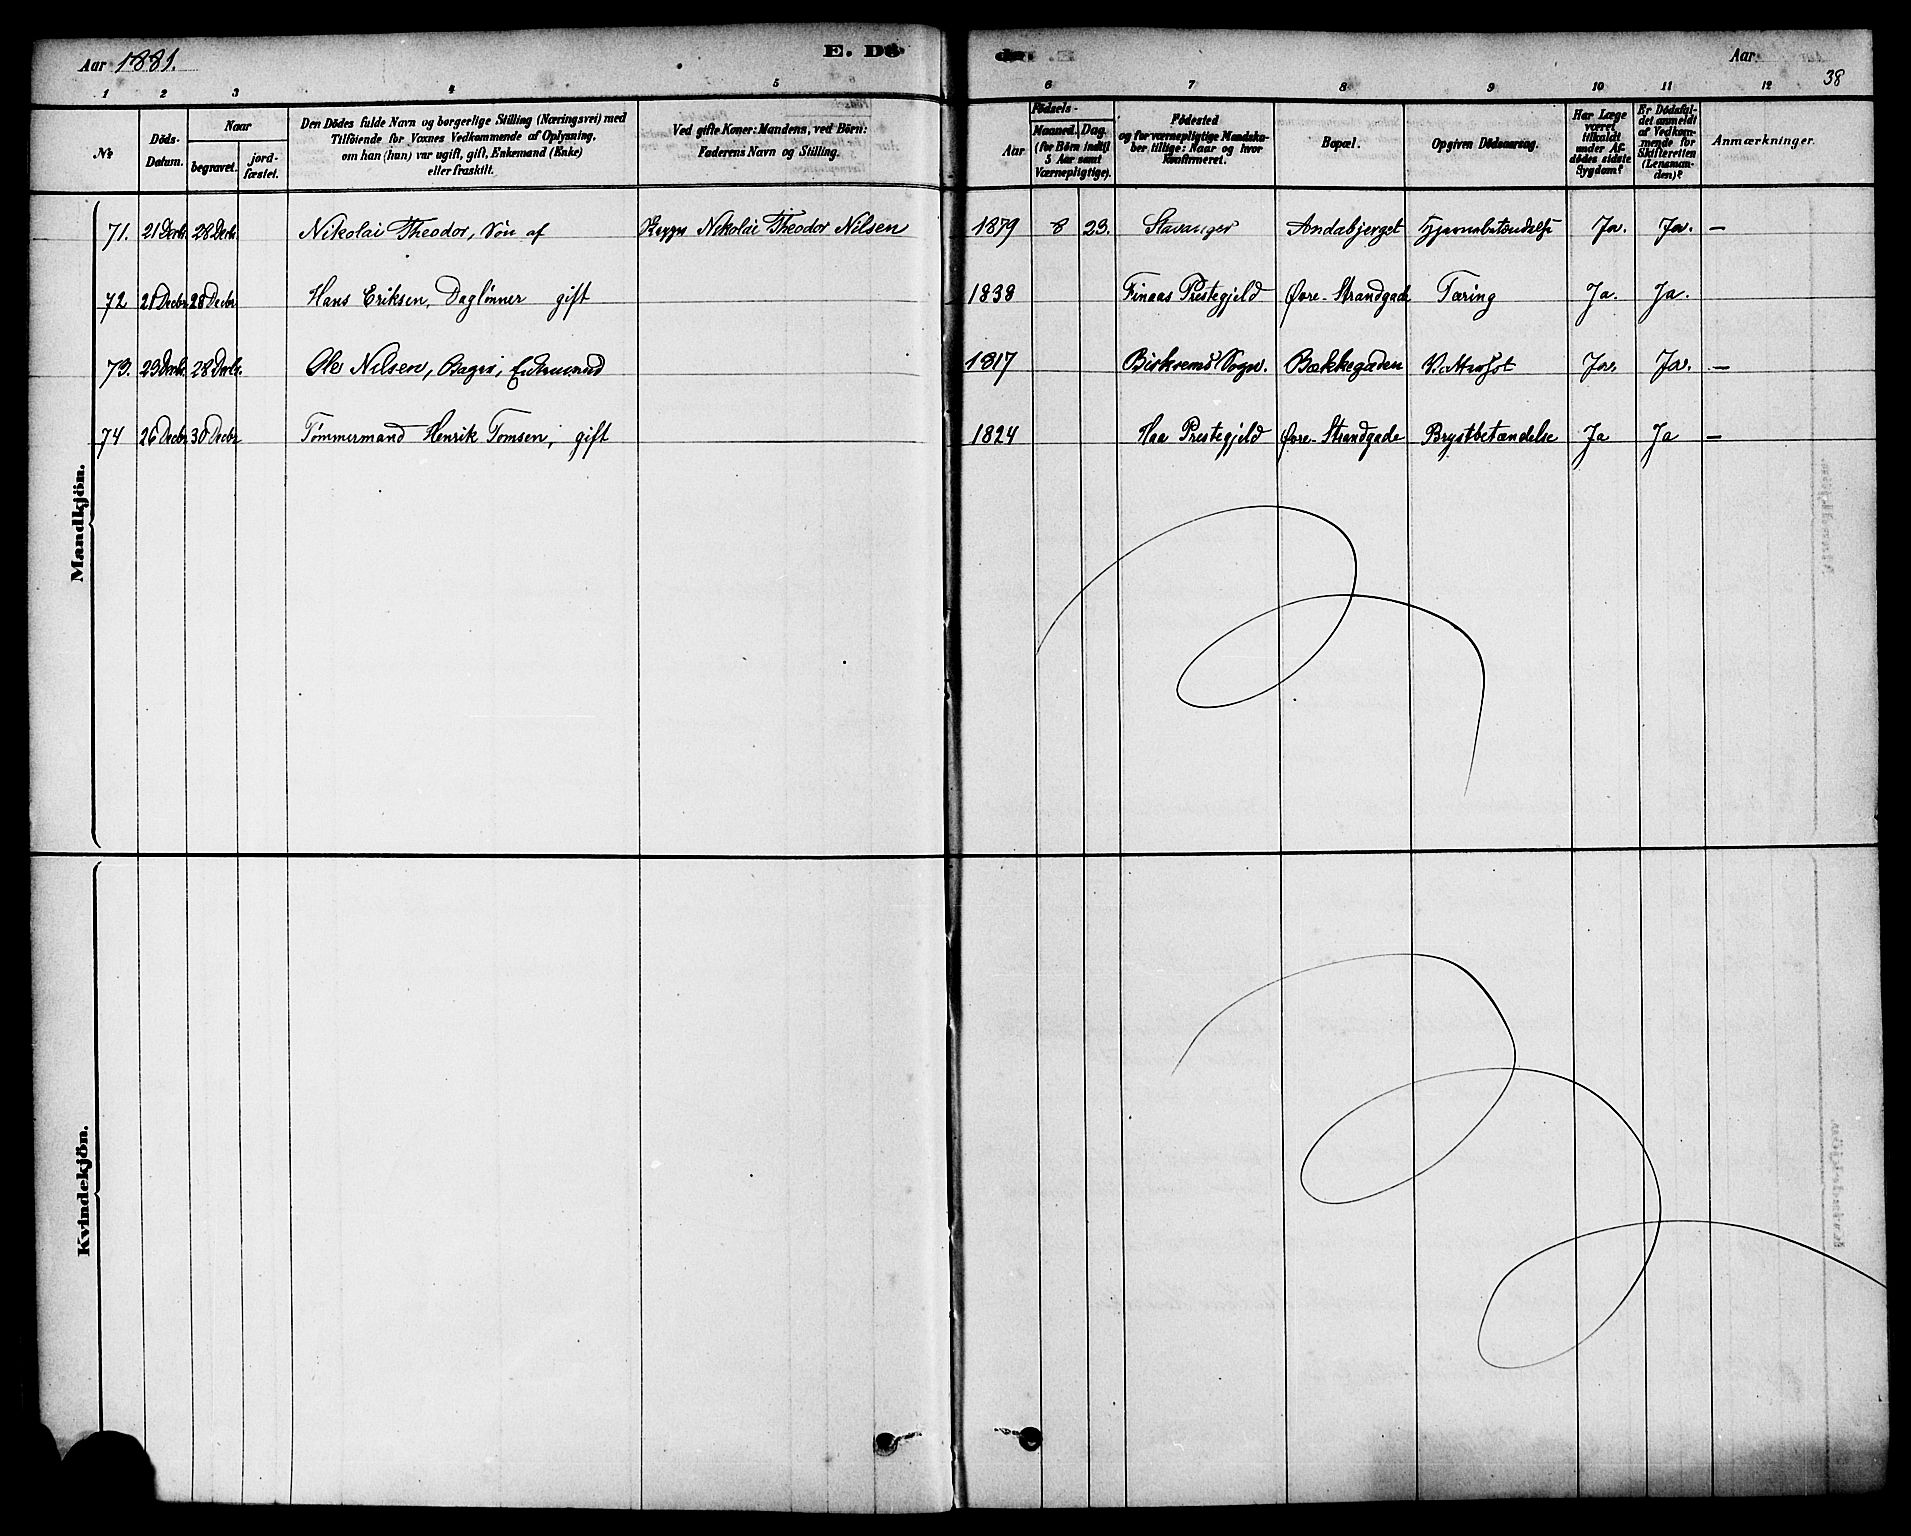 Aar 1881.
E. Dö
de.
Aar
38
1 2 3 4 5 6 7 8 9 10 11 12
No
Döds-
Datum.
Naar
begravet.
jord-
fæstet.
Den Dödes fulde Navn og borgerlige Stilling (Næringsvei) med
Tilföiende for Voxnes Vedkommende af Oplysning,
om han (hun) var ugift, gift, Enkemand (Enke)
eller fraskilt.
Ved gifte Koner: Mandens, ved Börn:
Faderens Navn og Stilling.
Födsels-
Aar
Maaned. Dag.
(for Börn indtil
5 Aar samt
Værnepligtige).
Födested
og for værnepligtige Mandska-
ber tillige: Naar og hvor
Konfirmeret.
Bopæl.
Opgiven Dödsaarsag.
Har Læge
været
tilkaldt
under Af-
dödes sidste
Sygdom?
Er Dödsfal-
det anmeldt
af Vedkom-
mende for
Skifteretten
(Lensman-
den)?
Anmærkninger.
Mandkjön.
71. 21 Decbr. 28 Decbr. Nikolai Theodor, Sön af Nikolai Theodor Nilsen 1879 8 23. Stavanger Andabjerget Hjernebetændelse Ja. Ja. —
72 21 Decbr 28 Decbr Hans Eriksen, Daglönner gift 1838 Finaas Prestegjeld Øvre-Strandgade Tæring Ja. Ja.
73. 23 Decbr. 28 Decbr. Ole Nilsen, Bager, Enkemand 1817 Birkrems Sogn. Bakkegaden Vattersot Ja. Ja. —
74 26 Decbr 30 Decbr Tømmermand Henrik Tomsen, gift 1824 Haa Prestegjeld Øvre-Strandgade Brystbetændelse Ja Ja —
Kvindekjön.